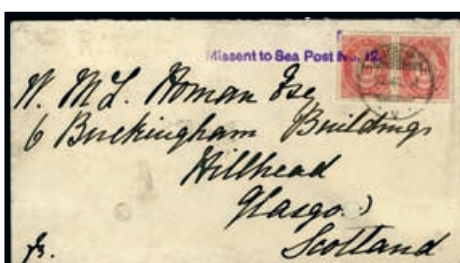 Missent to Sea Post No. 12.
W. M. L. Homan Esq
6 Buckingham Buildings
Hillhead
Glasgow
Scotland